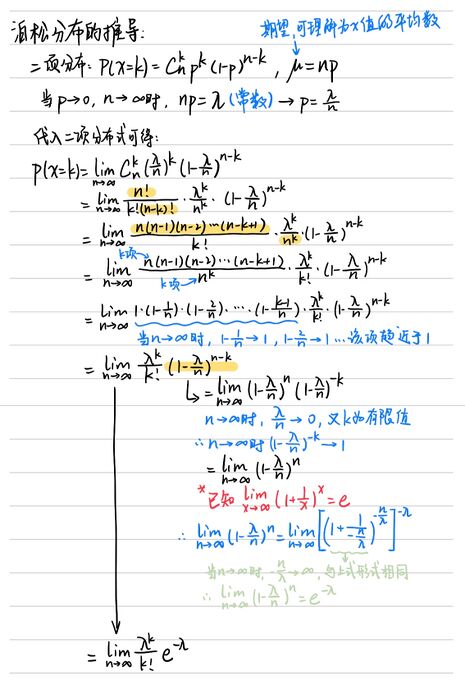 泊松分布的推导:
期望,可理解为x值的平均数
二项分布: P(X=k) = Cₙᵏ pᵏ (1-p)ⁿ⁻ᵏ , μ=np
当 p→0, n→∞时, np=λ (常数) → p=λ/n
代入二项分布式可得:
P(X=k) = lim n→∞ Cₙᵏ (λ/n)ᵏ (1-λ/n)ⁿ⁻ᵏ
= lim n→∞ n!/k!(n-k)! · λᵏ/nᵏ · (1-λ/n)ⁿ⁻ᵏ
= lim n→∞ n(n-1)(n-2)···(n-k+1)/k! · λᵏ/nᵏ · (1-λ/n)ⁿ⁻ᵏ
k项
= lim n→∞ n(n-1)(n-2)···(n-k+1)/nᵏ · λᵏ/k! · (1-λ/n)ⁿ⁻ᵏ
k项
= lim n→∞ 1·(1-1/n)·(1-2/n)····(1-(k-1)/n)·λᵏ/k!·(1-λ/n)ⁿ⁻ᵏ
当n→∞时, 1-1/n→1, 1-2/n→1 ... 该项趋近于1
= lim n→∞ λᵏ/k! (1-λ/n)ⁿ⁻ᵏ
= lim n→∞ (1-λ/n)ⁿ (1-λ/n)⁻ᵏ
n→∞时, λ/n→0, 又k为有限值
∴ n→∞时 (1-λ/n)⁻ᵏ→1
= lim n→∞ (1-λ/n)ⁿ
*已知 lim x→∞ (1+1/x)ˣ = e
∴ lim n→∞ (1-λ/n)ⁿ = lim n→∞ [(1+1/(-n/λ))^(-n/λ)]^(-λ)
当n→∞时, -n/λ→∞, 与上式形式相同
∴ lim n→∞ (1-λ/n)ⁿ = e^(-λ)
= lim n→∞ λᵏ/k! e^(-λ)